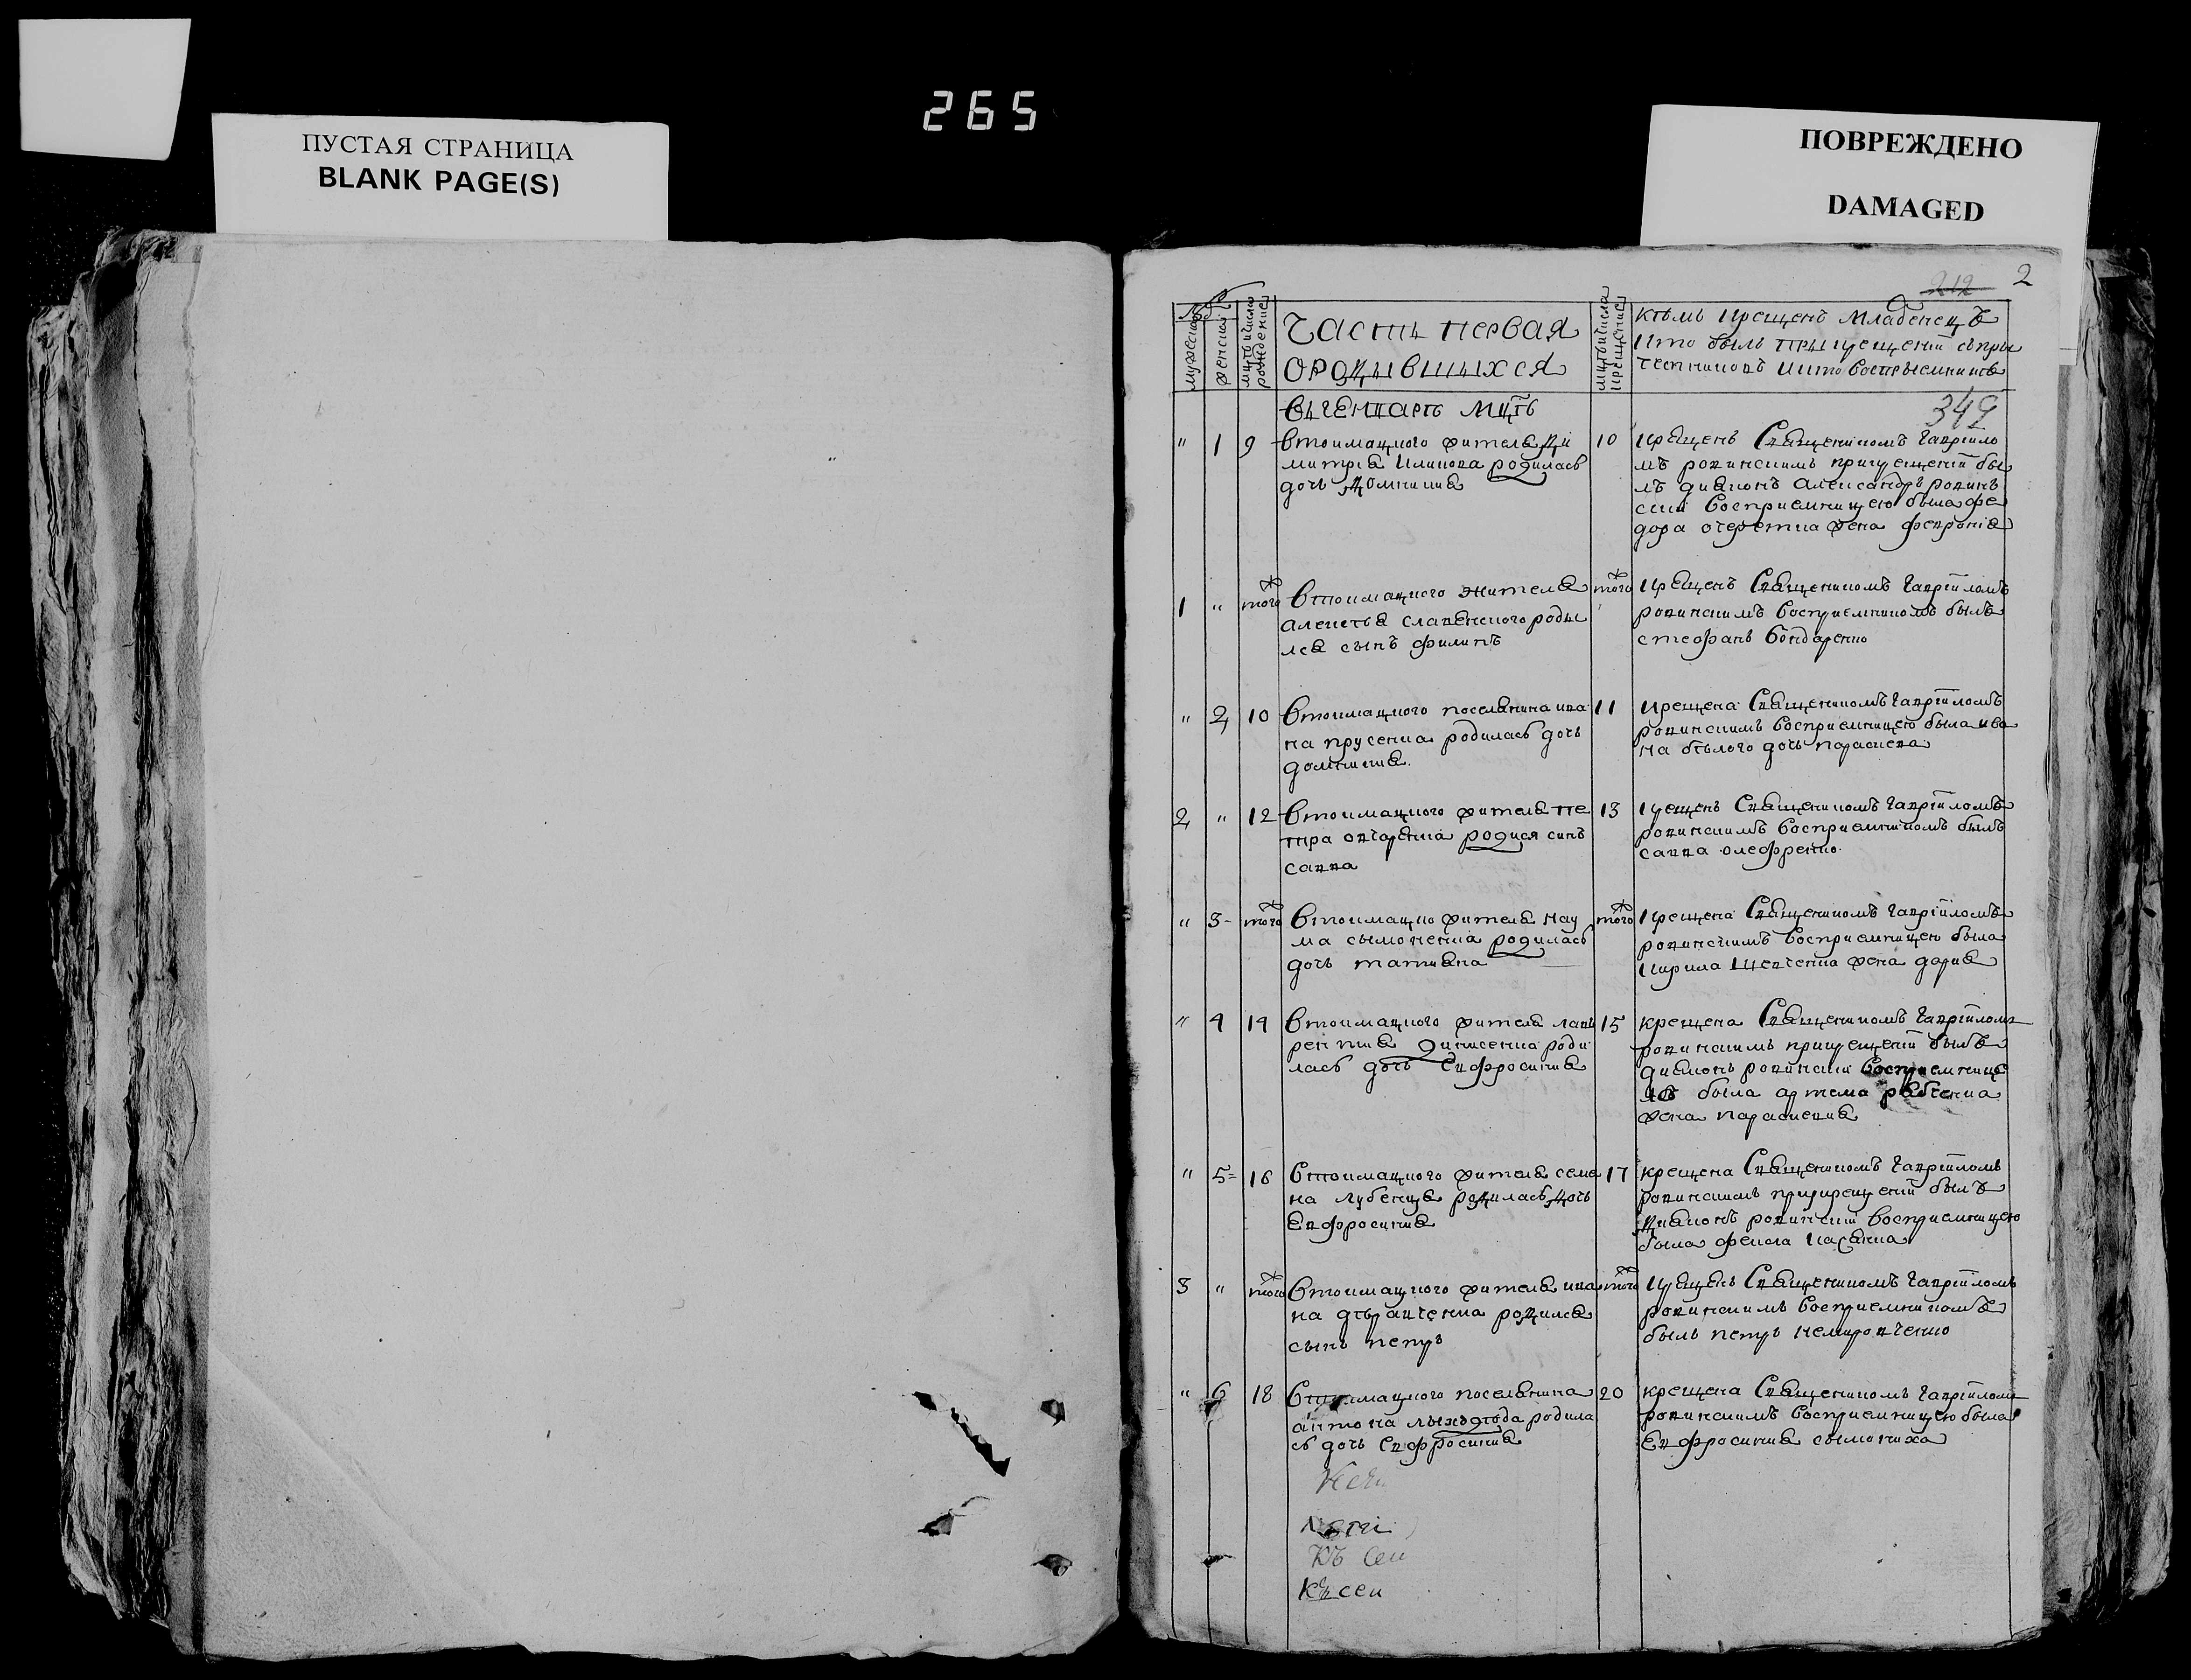 265
ПУСТАЯ СТРАНИЦА
BLANK PAGE(S)
ПОВРЕЖДЕНО
DAMAGED
212 2
№
мужескиа
женскиа
мцъ и число рождение
Часть первая
ородывшихся
мцъ и числа крещение
кѣмъ крещенъ младенецъ
и кто былъ при крещеніи съпры
четниковъ и кто воспрыемникъ
въгенварѣ мцѣ
349
" 1 9
втоимацкого жителя ди
митрія климова родилась
дочь домникия
10
крещенъ священикомъ гавріило
мъ ровинскимъ прикрещеніи бы
лъ диаконъ александръ ровин
скии восприемницею была фе
дора очеретка жена февроніа
1 " тогож
втоимацкого жителя
алексѣя славенского роды
лся сынъ филипъ
тогож
крещенъ священикомъ гавріиломъ
ровинскимъ восприемникомъ былъ
стефанъ бондаренко
" 2 10
втоимацкого поселянина ива
на прусенка родилась дочь
домникия.
11
крещена священикомъ гавріиломъ
ровинскимъ восприемницею была ива
на бѣлого дочь параскева
2 " 12
втоимацкого жителя пе
тра овчаренка родися синъ
савва
13
крещенъ священикомъ гавріиломъ
ровинскимъ восприемникомъ былъ
савва олефренко
" 3 тогож
втоимацко жителя нау
ма сымоненка родилась
дочь татияна
тогож
крещена священикомъ гавріиломъ
ровинскимъ восприемницею была
кирила шевченка жена дария
" 4 14
втоимацкого жителя лавы
рентия динисенка роди
лась дочь евфросиния
15
крещена священикомъ гавріиломъ
ровинскимъ прикрещеніи былъ
дияконъ ровинскии восприемнице
ю была артема рябченка
жена параскевия
" 5 16
втоимацкого жителя семе
на лубенця родилась дочь
евфросиния
17
крещена священикомъ гавріиломъ
ровинскимъ прикрещеніи былъ
дияконъ ровинскии восприемницею
была фекла касянка
3 " тогож
втоимацкого жителя ива
на дѣравченка родился
сынъ петръ
тогож
крещенъ священикомъ гавріиломъ
ровинскимъ восприемникомъ
былъ петръ немировченко
" 6 18
втоимацкого поселянина
антона лыходѣда родила
сь дочь евфросиния
20
крещена священикомъ гавріиломъ
ровинскимъ восприемницею была
евфросиния сымониха
къ сеи
къ сеи